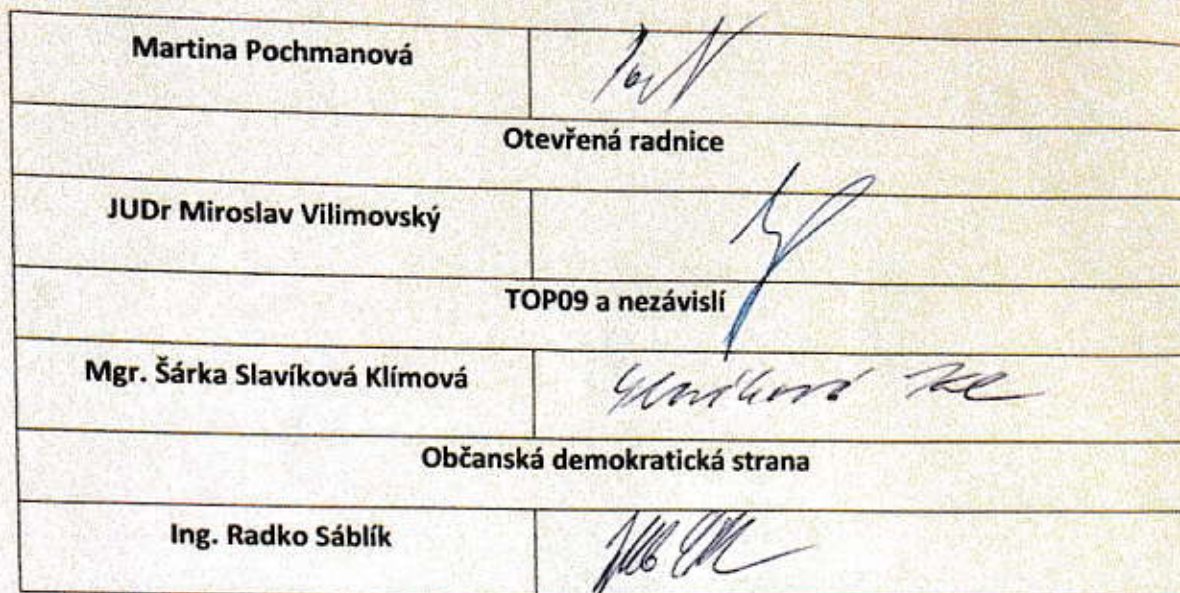 Martina Pochmanová
Otevřená radnice
JUDr Miroslav Vilimovský
TOP09 a nezávislí
Mgr. Šárka Slavíková Klímová
Občanská demokratická strana
Ing. Radko Sáblík